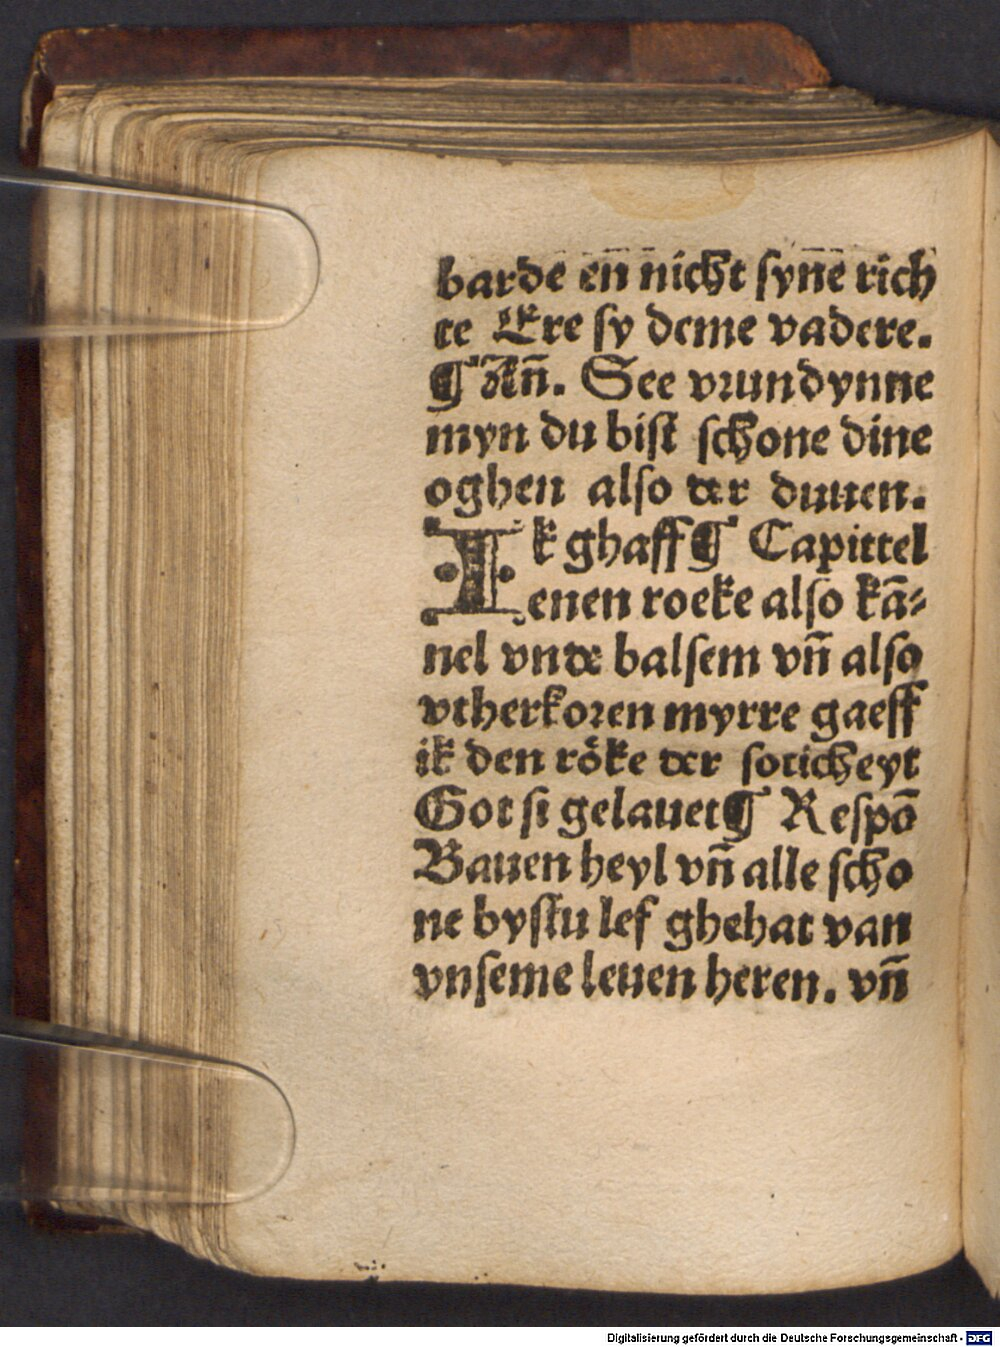 barde en̄ nicht syne rich
te Ere sy deme vadere.
¶ Ān̄. See vrundynne
myn du bist schone dine
oghen also der duuen.
Ik ghaff ¶ Capittel
enen roeke also kā⸗
nel vnde balsem vn̄ also
vtherkoren myrre gaeff
ik den röke der soticheyt
Got si gelauet ¶ Respō
Bauen heyl vn̄ alle scho
ne bystu lef ghehat van
vnseme leuen heren. vn̄
Digitalisierung gefördert durch die Deutsche Forschungsgemeinschaft - DFG